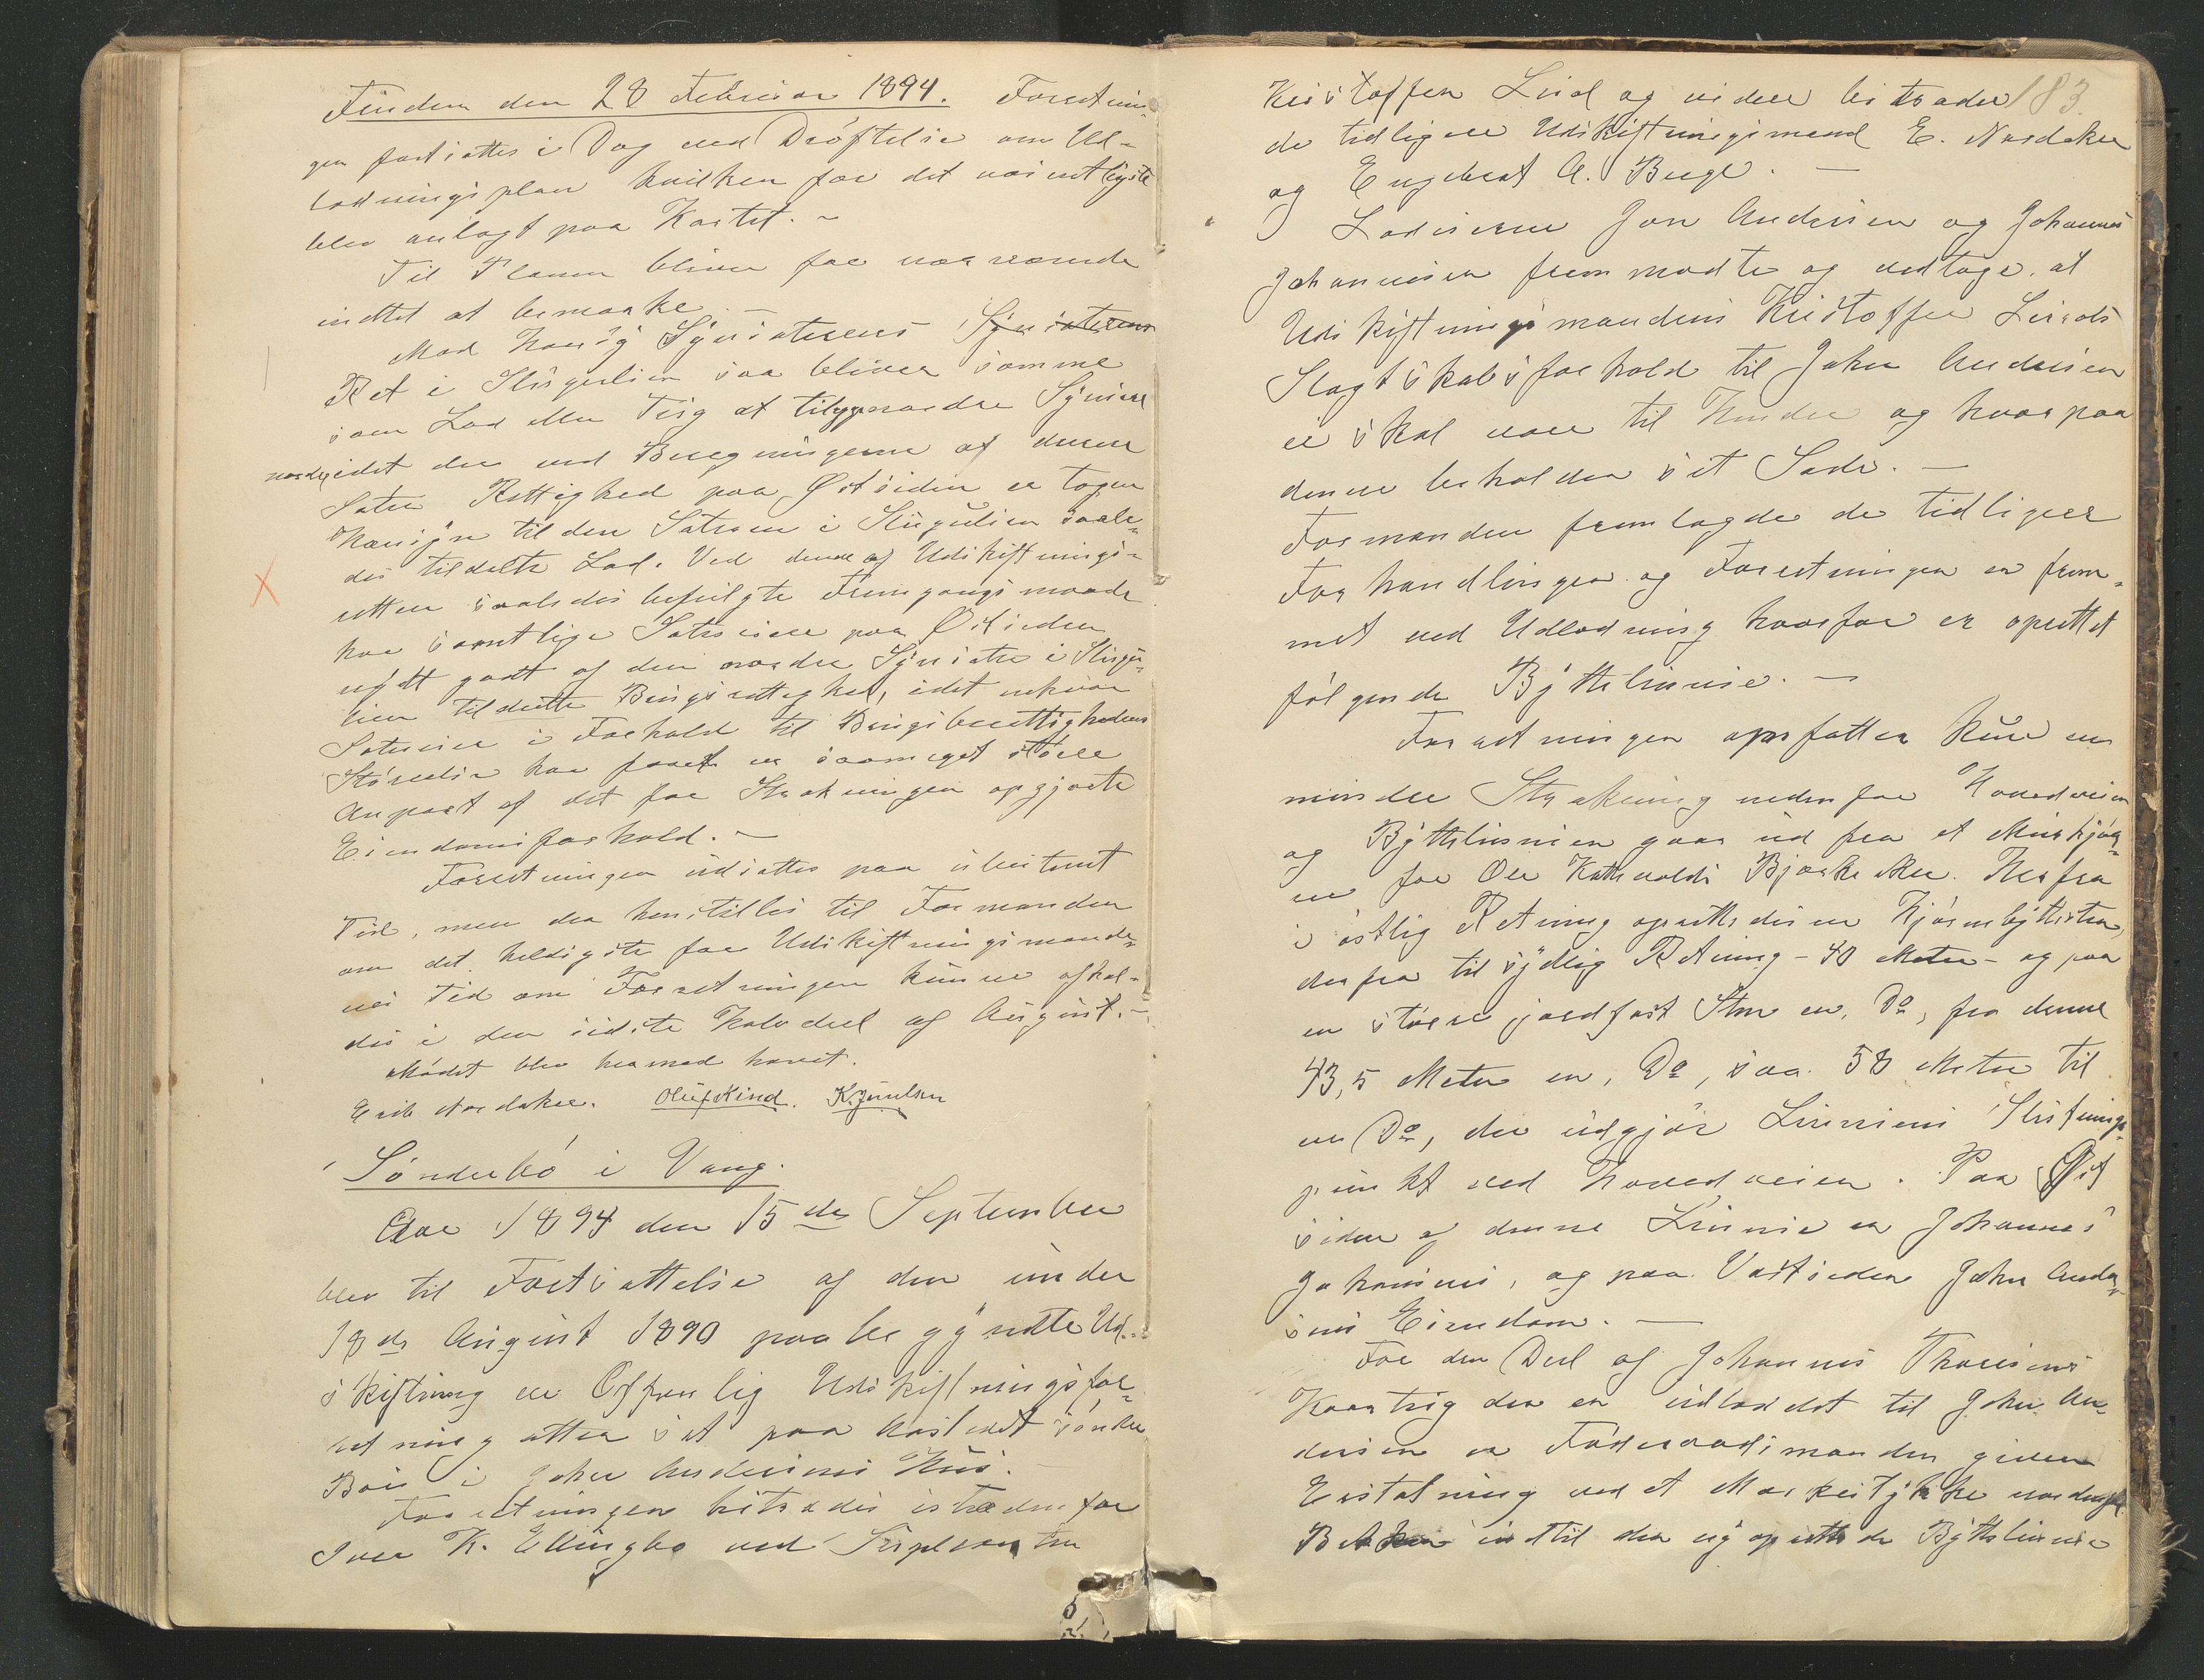 Tinden den 28 Februar 1894. Forretnin-
gen fortsattes i Dag ved Drøftelse om Ud-
lodningsplan hvilken for det væsentligste
blev anlagt paa Kartet. -
Til Planen bliver for nærværende
indtet at bemærke. -
Med Hensyn Synsæterens
Ret i Slugulien saa bliver samme
som Lod eller Teig at tilgrændse
idet der ved Beregningerne af denne
Sæter Rettighed paa Østsiden er tagen
Hensyn til den Sæteren i Slugulien saale-
des tildelte Lod. Ved denne af Udskiftnings-
retten saaledes befulgte Fremgangsmaade
har samtlige Sætereiere paa Østsiden
nydt godt af den nordre Synsæter i Slugu-
lien tildelte Brugsrettighed, idet enhver
Sætereier i Forhold til Brugsberettighedens
Størrelse har faaet en saameget større
Anpart af det for Strækningen opgjorte
Eiendomsforhold. -
Forretningen udsættes paa ubestemt
Tid, men der henstilles til Formanden
om det heldigste for Udskiftningsmænde-
nes Tid om Forretningen kunne afhol-
des i den sidste Halvdel af August. -
Mødet blev hermed hævet.
Erik Nordaker. Oluf Kind. K. Juulsen
Sønderbø i Vang.
Aar 1894 den 15de September
blev til Fortsættelse af den under
18de August 1890 paabegyndte Ud-
skiftning en Offenlig Udskiftningsfor-
retning atter sat paa Aastedet søndre
Bøe i John Andersens Hus. -
Forretningen bitrædes istedenfor
Iver K. Ellingbø ved Suppleanten
Kristoffer Lird og videre bitræder 183
de tidligere Udskiftningsmænd E. Nordaker
og Engebret A. Berge. -
Lodeierne Jon Andersen og Johannes
Johannesen fremmødte og vedtoge, at
Udskiftningsmandens Kristoffer Lirds
Slægtskabsforhold til John Andersen
ei skal være til Hinder og hvorpaa
denne beholder sit Sæde. -
Formanden fremlagde de tidligere
Forhandlinger og Forretningen er frem-
met ved Udlodning hvorfor er oprettet
følgende Byttelinnie. -
Forretningen omfatter kun en
mindre Strækning nedenfor Hovedveien
og Byttelinnien gaar ud fra et Merkhjør-
ne for Ole Kattevolds Bjørke. Herfra
i østlig Retning oprettedes en Hjørnebyttesten,
derfra til sydlig Retning - 40 Meter - og paa
en større jordfast Sten en, Do, fra denne
43,5 Meter en, Do, saa 58 Meter til
en Do, der udgjør Linniens Slutnings-
punkt ved Hovedveien. Paa Øst
siden af denne Linnie er Johannes
Johannes, og paa Vestsiden John Ander-
sens Eiendom. -
For den Deel af Johannes Thoresens
Kaarteig der er udloddet til John An-
dersen er Føderaadsmanden given
Erstatning ved et Markestykke
Bækken indtil den nyoprettede Byttelinnie